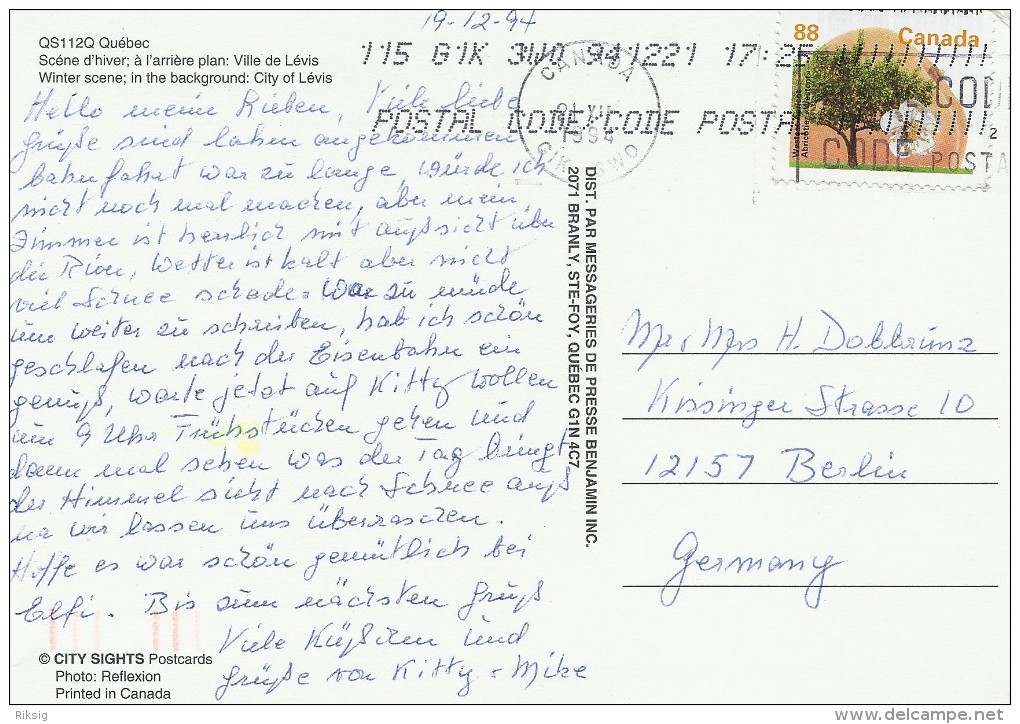 19-12-94
QS112Q Québec
Scéne d'hiver; à l'arrière plan: Ville de Lévis
Winter scene; in the background: City of Lévis
115 G1K 3W0 941221 17:25
POSTAL CODE/CODE POSTAL
CANADA
21 XII
1994
G1K 3W0
88 Canada
CODE
CODE POSTA
2
Hello meine Lieben, Viele liebe
Grüße sind angekommen
bahnfahrt war zu lange, würde ich
nicht noch mal machen, aber mein
Zimmer ist herrlich mit außsicht über
den River, Wetter ist kalt aber nicht
viel Schnee schade. War zu müde
um weiter zu schreiben, hab ich schön
geschlafen nach der Eisenbahn ein
genuß, warte jetzt auf Kitty wollen
um 9 Uhr Frühstücken gehen und
dann mal sehen was der Tag bringt
der Himmel sieht nach Schnee auß
na wir lassen uns überraschen.
Hoffe es war schön gemütlich bei
Elfi. Bis zum nächsten Gruß
Viele Küßchen und
Grüße von Kitty + Mike
DIST. PAR MESSAGERIES DE PRESSE BENJAMIN INC.
2071 BRANLY, STE-FOY, QUÉBEC G1N 4C7
Mr + Mrs H. Dobbrunz
Kissinger Strasse 10
12157 Berlin
Germany
© CITY SIGHTS Postcards
Photo: Reflexion
Printed in Canada
Riksig
delcampe.net